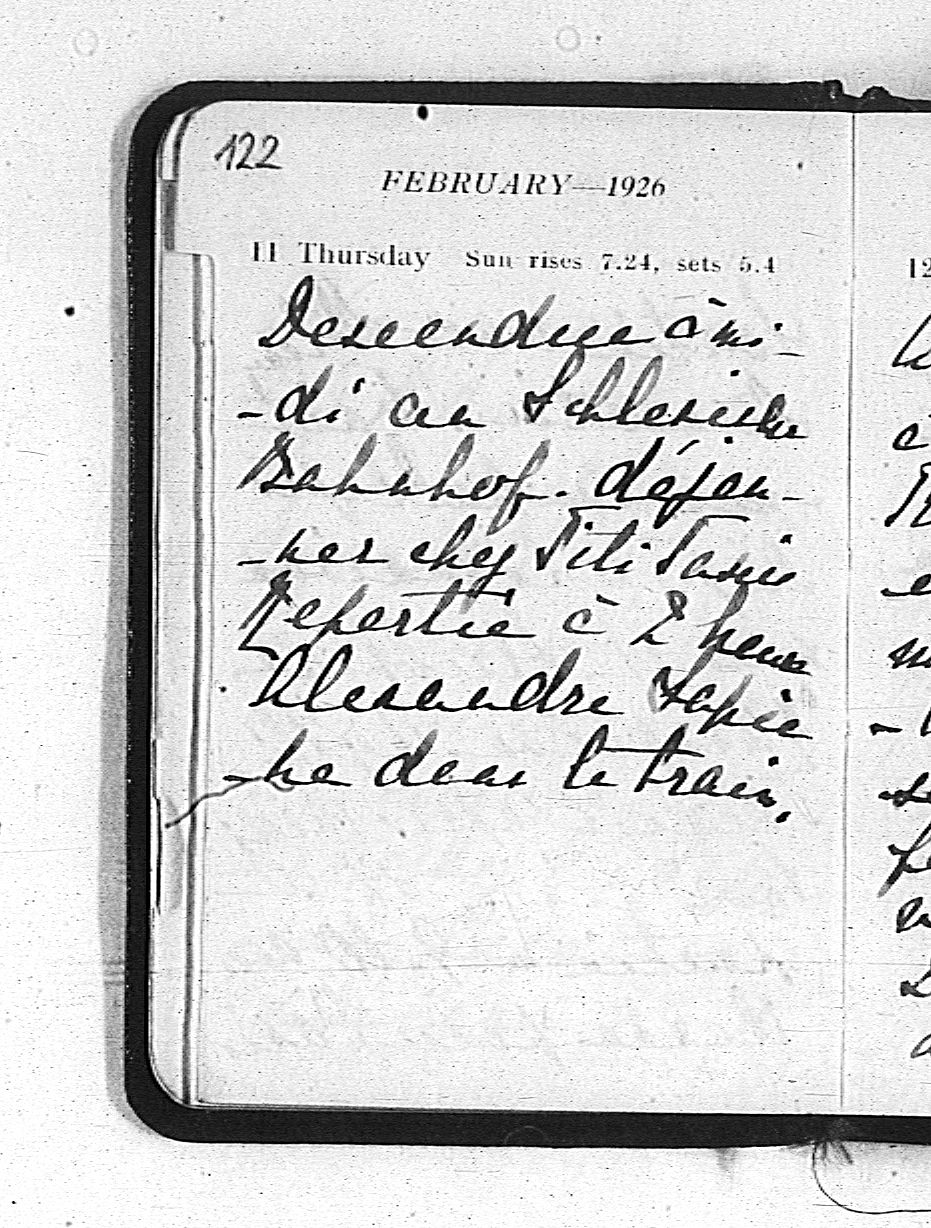 122
FEBRUARY—1926
11 Thursday Sun rises 7.24, sets 5.4
Descendue à mi-
-di au Schlesische
Bahnhof. déjeu-
-ner chez Titi Taxis
Repartie à 2 heures
Alexandre Sapie
-ha dans le train.
12